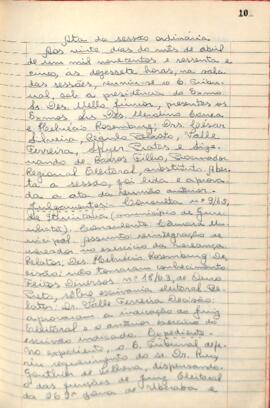 10
Ata da sessão ordinária
Aos vinte dias do mês de abril
de um mil novecentos e sessenta e
cinco, às dezessete horas, na sala
das sessões, reuniu-se o E. Tribu-
nal, sob a presidência do Exmo
Sr. Des. Mello Júnior, presentes os
Exmos. Srs. Des. Merolino Corrêa
e Helvécio Rosenburg; Drs. César
Silveira, Valle
Ferreira, Prates e
de Barros Filho, Procurador
Regional Eleitoral, substituto. Aber-
ta a sessão, foi lida e aprova-
da a ata da reunião anterior.
Julgamentos: Consulta nº 9/63,
de (município de
). Consulente: Câmara Mu-
nicipal. reintegração de
vereador no exercício da vereança
Relator: Des. Helvécio Rosenburg De-
cisão: não tomaram conhecimento
Feitos Diversos nº 18/63, de Ouro
Preto, sôbre escrivania eleitoral Re-
lator: Dr. Valle Ferreira Decisão:
aprovaram a indicação do Juiz
Eleitoral e o exercício do
escrivão indicado. Expediente:
no expediente, o E. Tribunal defe-
riu requerimento do Sr. Dr. Ruy
Gouthier de , dispensando-
o das funções de Juiz Eleitoral
da zona de Uberaba e